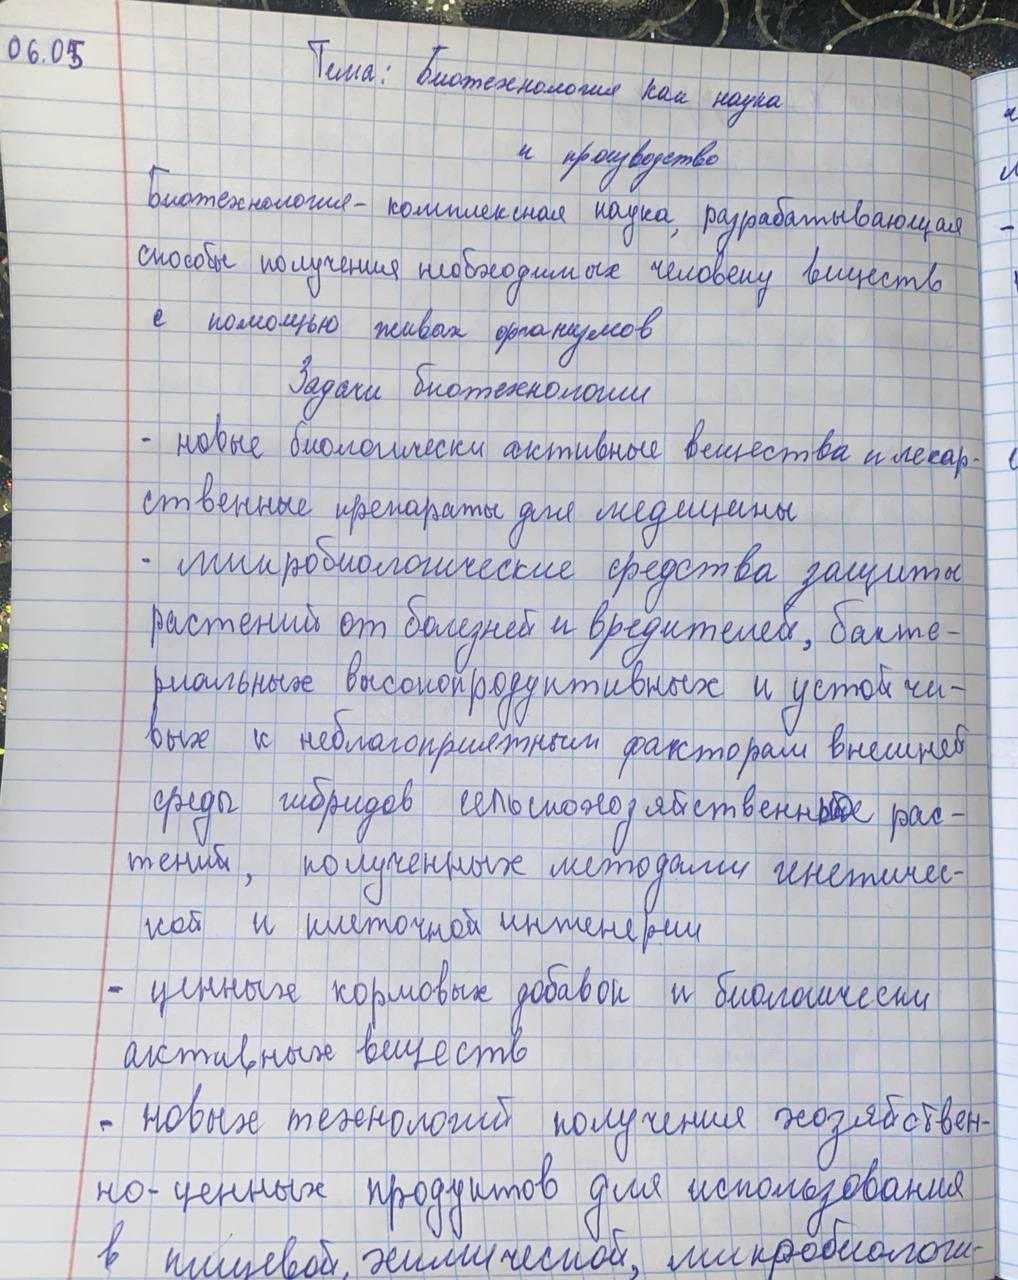 06.05
Тема: Биотехнология как наука
и производство
Биотехнология - комплексная наука, разрабатывающая
способы получения необходимых человеку веществ
с помощью живых организмов
Задачи биотехнологии
- новые биологически активные вещества и лекар-
ственные препараты для медицины
- микробиологические средства защиты
растений от болезней и вредителей, бакте-
риальных высокопродуктивных и устойчи-
вых к неблагоприятным факторам внешней
среды гибридов сельскохозяйственных рас-
тений, полученных методами генетичес-
кой и клеточной инженерии
- ценных кормовых добавок и биологически
активных веществ
- новых технологий получения хозяйствен-
но-ценных продуктов для использования
в пищевой, химической, микробиологи-